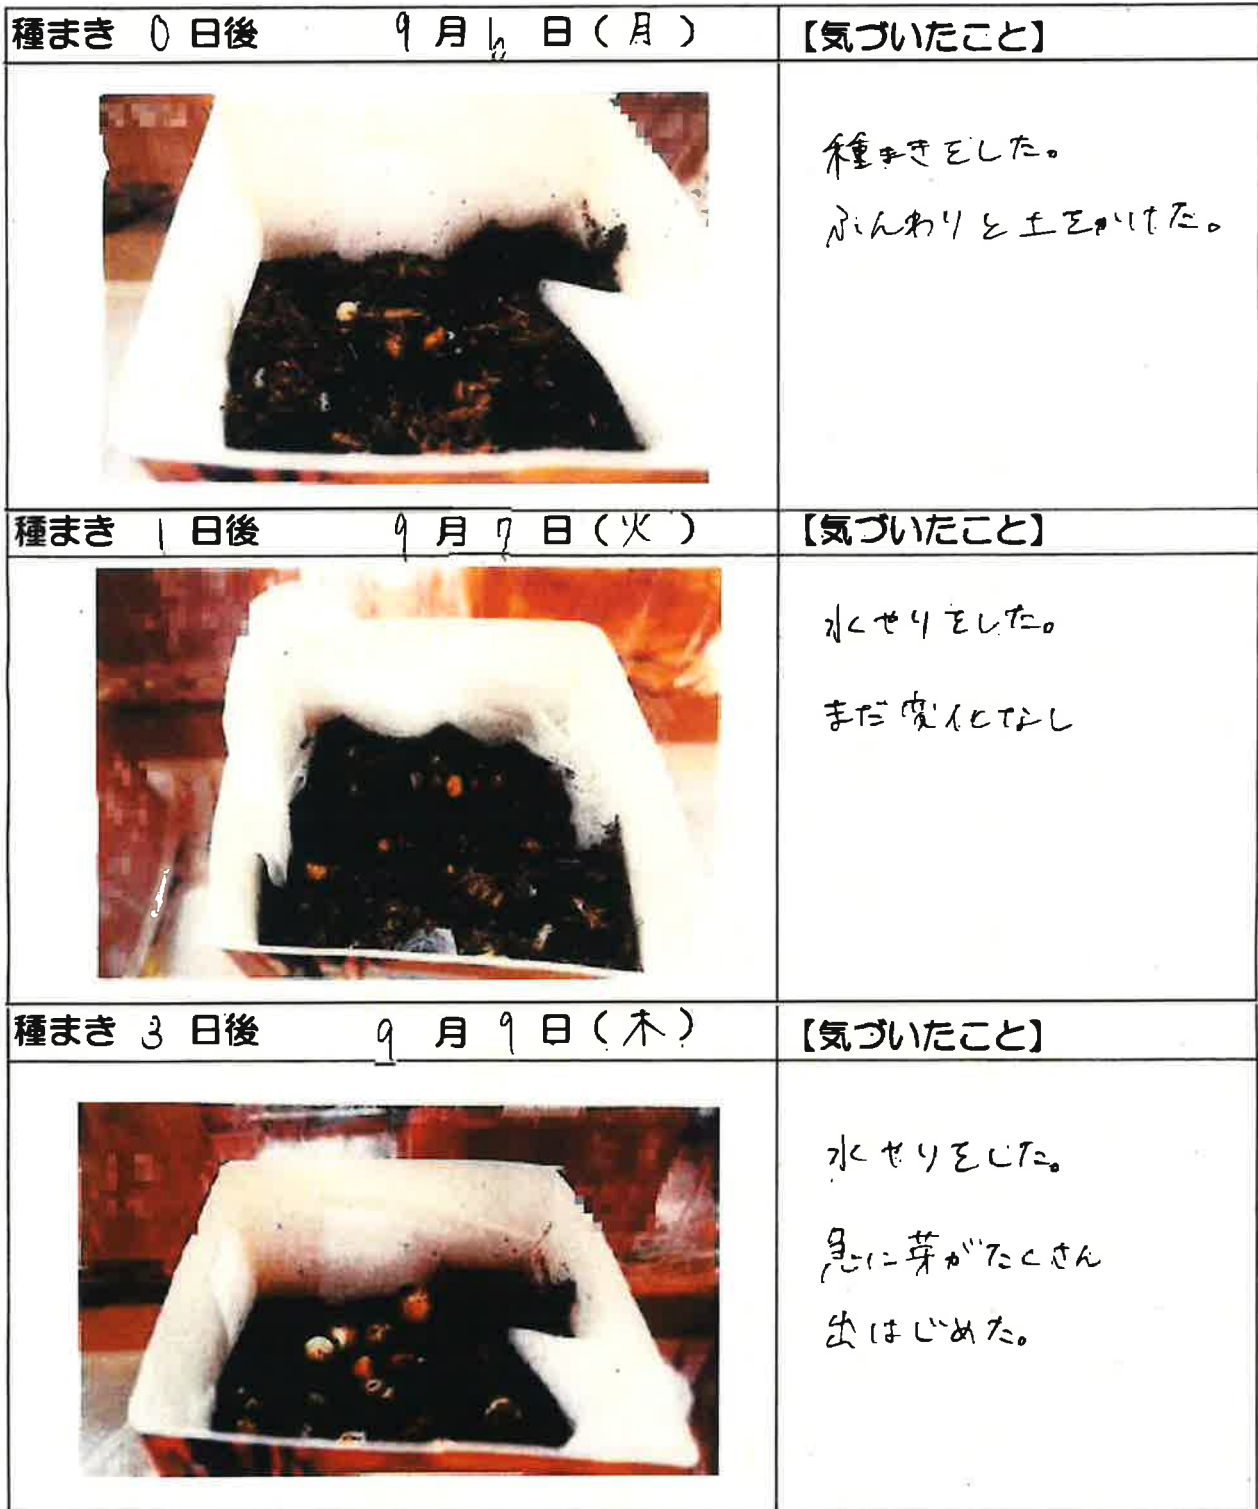 種まき 0 日後 9 月 6 日 (月)
【気づいたこと】
種まきをした。
ふんわりと土をかけた。
種まき 1 日後 9 月 7 日 (火)
【気づいたこと】
水やりをした。
まだ変化なし
種まき 3 日後 9 月 9 日 (木)
【気づいたこと】
水やりをした。
急に芽がたくさん
出はじめた。